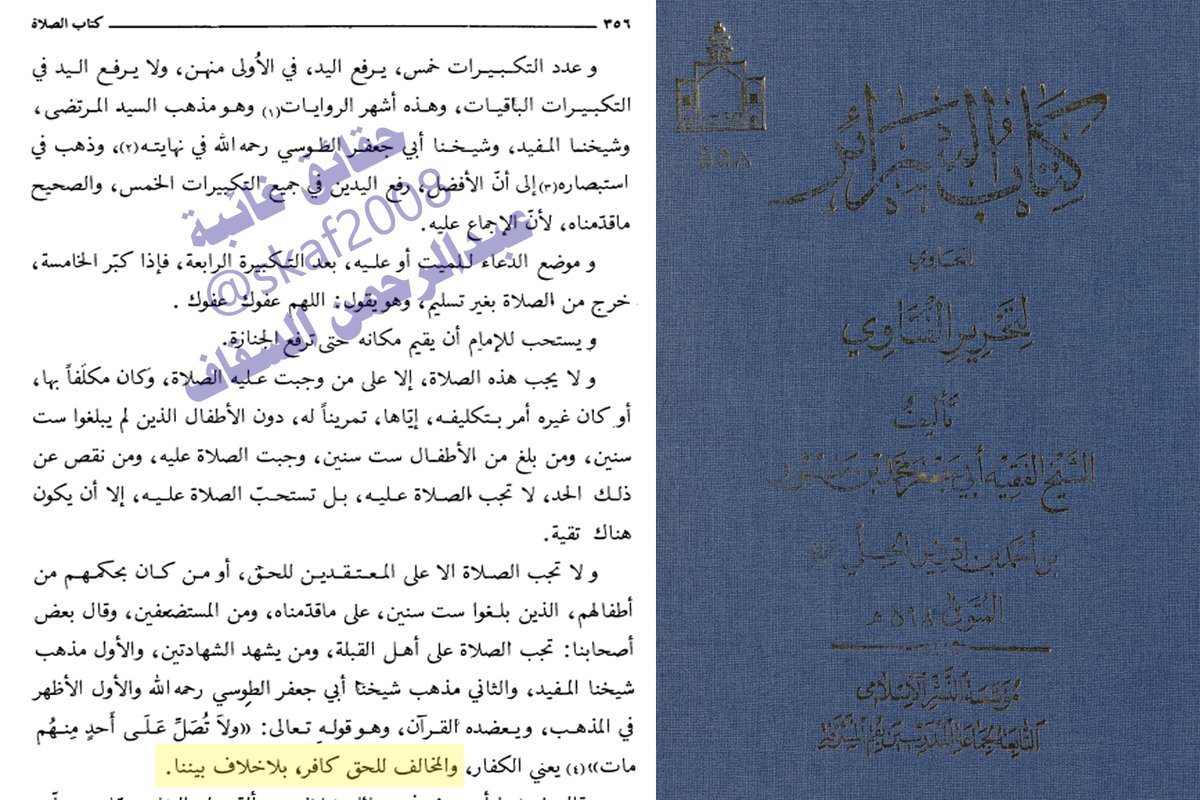 ٣٥٦ كتاب الصلاة
و عدد التكبيرات خمس، يرفع اليد، في الأولى منهن، ولا يرفع اليد في
التكبيرات الباقيات، وهذه أشهر الروايات(١) وهو مذهب السيد المرتضى،
وشيخنا المفيد، وشيخنا أبي جعفر الطوسي رحمه الله في نهايته(٢)، وذهب في
استبصاره(٣) إلى أنّ الأفضل، رفع اليدين في جميع التكبيرات الخمس، والصحيح
ماقدّمناه، لأنّ الإجماع عليه.
و موضع الدعاء للميت أو عليه، بعد التكبيرة الرابعة، فإذا كبّر الخامسة،
خرج من الصلاة بغير تسليم، وهو يقول: اللهم عفوك عفوك .
و يستحب للإمام أن يقيم مكانه حتى ترفع الجنازة.
و لا يجب هذه الصلاة، إلا على من وجبت عليه الصلاة، وكان مكلّفاً بها،
أو كان غيره أمر بتكليفه، إيّاها، تمريناً له، دون الأطفال الذين لم يبلغوا ست
سنين، ومن بلغ من الأطفال ست سنين، وجبت الصلاة عليه، ومن نقص عن
ذلك الحد، لا تجب الصلاة عليه، بل تستحبّ الصلاة عليه، إلا أن يكون
هناك تقية.
و لا تجب الصلاة الا على المعتقدين للحق، أو من كان بحكمهم من
أطفالهم، الذين بلغوا ست سنين، على ماقدّمناه، ومن المستضعفين، وقال بعض
أصحابنا: تجب الصلاة على أهل القبلة، ومن يشهد الشهادتين، والأول مذهب
شيخنا المفيد، والثاني مذهب شيخنا أبي جعفر الطوسي رحمه الله والأول الأظهر
في المذهب، ويعضده القرآن، وهو قوله تعالى: «ولاَ تُصَلِّ عَلَى أَحدٍ مِنهُم
مات»(٤) يعني الكفار، والمخالف للحق كافر، بلاخلاف بيننا.
حقائق غائبة
@skaf2008
عبدالرحمن السقاف
٥٥٨
كتاب السرائر
الحاوي
لتحرير الفتاوي
تأليف
الشيخ الفقيه أبي جعفر محمد بن منصور
بن أحمد بن ادريس الحلي
المتوفى ٥٩٨ هـ
مؤسسة النشر الإسلامي
التابعة لجماعة المدرسين بقم المشرفة